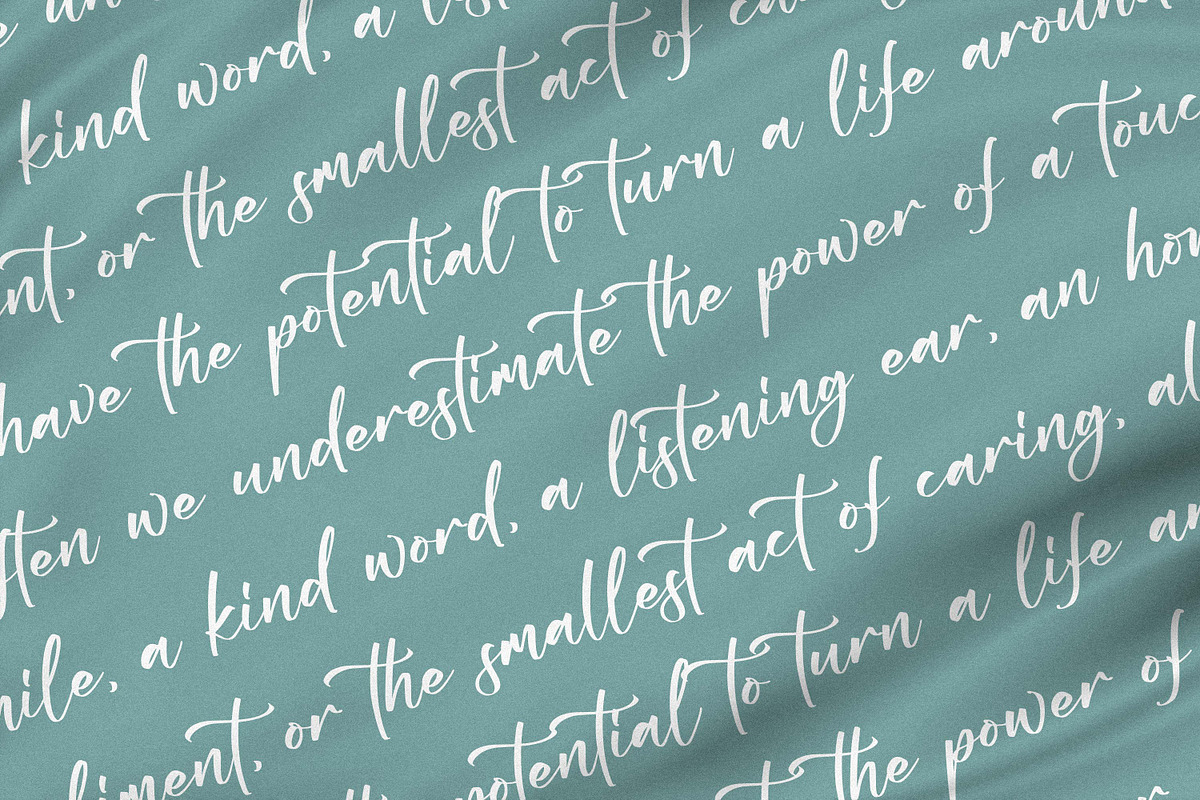 kind word, a
or the smallest act of
have the potential to turn a life around
we underestimate the power of a
a kind word, a listening ear, an
or the smallest act of caring,
potential to turn a life
the power of